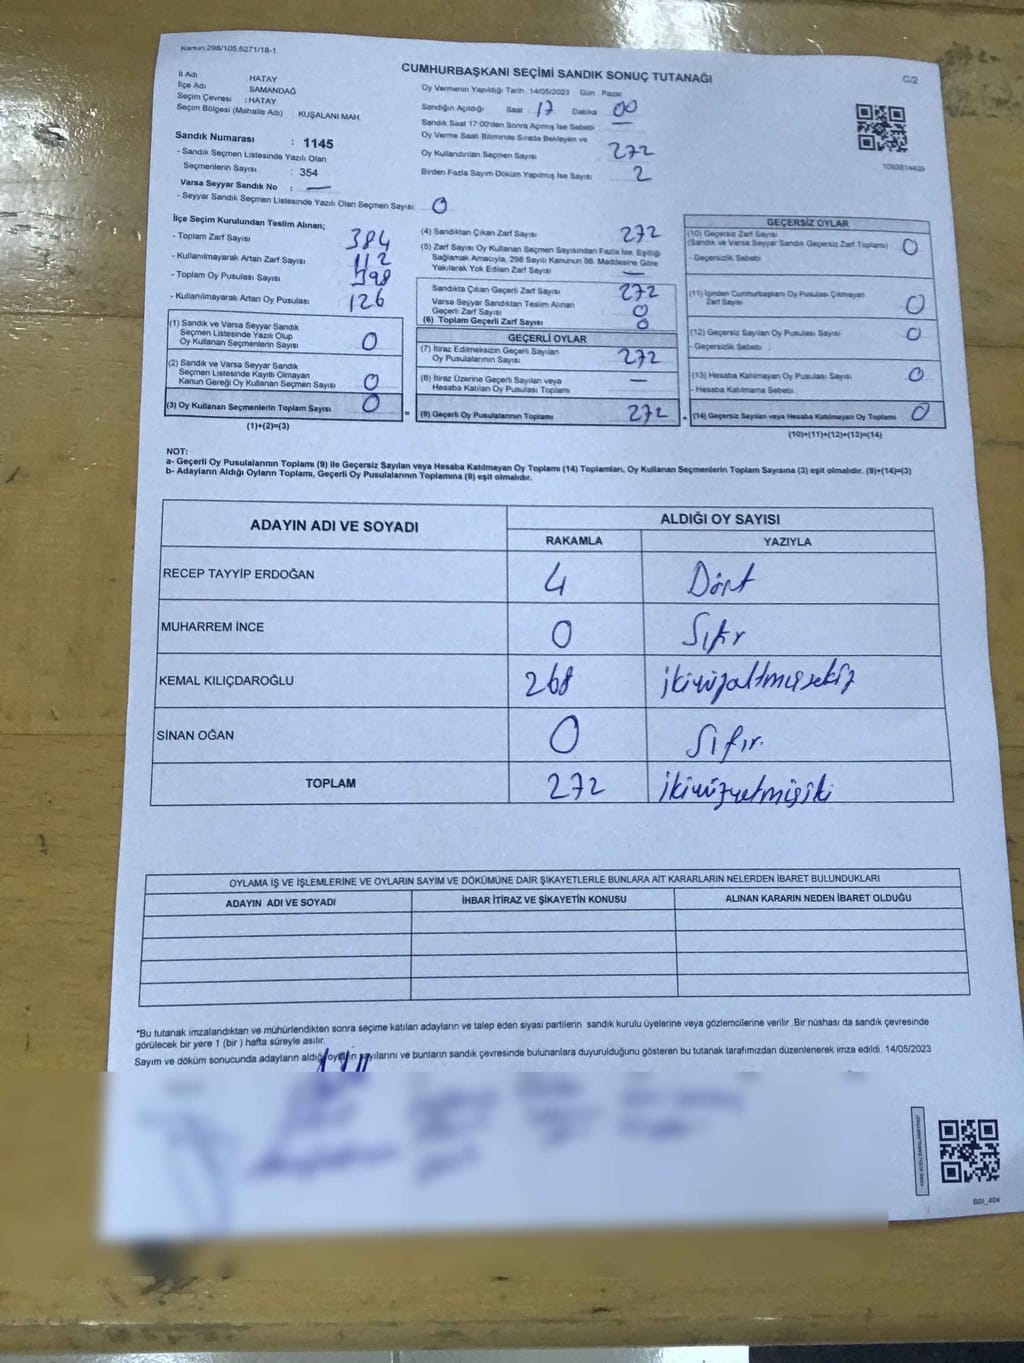 Kanun:298/105,6271/18-1
CUMHURBAŞKANI SEÇİMİ SANDIK SONUÇ TUTANAĞI
C/2
İl Adı HATAY
İlçe Adı : SAMANDAĞ
Seçim Çevresi : HATAY
Seçim Bölgesi (Mahalle Adı) : KUŞALANI MAH.
Sandık Numarası : 1145
- Sandık Seçmen Listesinde Yazılı Olan
Seçmenlerin Sayısı : 354
Varsa Seyyar Sandık No : —
- Seyyar Sandık Seçmen Listesinde Yazılı Olan Seçmen Sayısı: 0
Oy Vermenin Yapıldığı Tarih 14/05/2023 Gün Pazar
Sandığın Açıldığı Saat : 17 Dakika 00
Sandık Saat 17:00'den Sonra Açılmış İse Sebebi —
Oy Verme Saati Bitiminde Sırada Bekleyen ve
Oy Kullandırılan Seçmen Sayısı 272
Birden Fazla Sayım Döküm Yapılmış İse Sayısı 2
İlçe Seçim Kurulundan Teslim Alınan;
- Toplam Zarf Sayısı 384
- Kullanılmayarak Artan Zarf Sayısı 112
- Toplam Oy Pusulası Sayısı 398
- Kullanılmayarak Artan Oy Pusulası 126
(1) Sandık ve Varsa Seyyar Sandık
Seçmen Listesinde Yazılı Olup
Oy Kullanan Seçmenlerin Sayısı 0
(2) Sandık ve Varsa Seyyar Sandık
Seçmen Listesinde Kayıtlı Olmayan
Kanun Gereği Oy Kullanan Seçmen Sayısı 0
(3) Oy Kullanan Seçmenlerin Toplam Sayısı 0
(1)+(2)=(3)
(4) Sandıktan Çıkan Zarf Sayısı 272
(5) Zarf Sayısı Oy Kullanan Seçmen Sayısından Fazla İse, Eşitliği
Sağlamak Amacıyla, 298 Sayılı Kanunun 98. Maddesine Göre
Yakılarak Yok Edilen Zarf Sayısı —
Sandıkta Çıkan Geçerli Zarf Sayısı 272
Varsa Seyyar Sandıktan Teslim Alınan
Geçerli Zarf Sayısı 0
(6) Toplam Geçerli Zarf Sayısı 0
GEÇERLİ OYLAR
(7) İtiraz Edilmeksizin Geçerli Sayılan
Oy Pusulalarının Sayısı 272
(8) İtiraz Üzerine Geçerli Sayılan veya
Hesaba Katılan Oy Pusulası Toplamı —
= (9) Geçerli Oy Pusulalarının Toplamı 272 +
GEÇERSİZ OYLAR
(10) Geçersiz Zarf Sayısı
(Sandık ve Varsa Seyyar Sandık Geçersiz Zarf Toplamı) 0
- Geçersizlik Sebebi
(11) İçinden Cumhurbaşkanı Oy Pusulası Çıkmayan
Zarf Sayısı 0
(12) Geçersiz Sayılan Oy Pusulası Sayısı 0
- Geçersizlik Sebebi
(13) Hesaba Katılmayan Oy Pusulası Sayısı 0
- Hesaba Katılmama Sebebi
(14) Geçersiz Sayılan veya Hesaba Katılmayan Oy Toplamı 0
(10)+(11)+(12)+(13)=(14)
NOT:
a- Geçerli Oy Pusulalarının Toplamı (9) ile Geçersiz Sayılan veya Hesaba Katılmayan Oy Toplamı (14) Toplamları, Oy Kullanan Seçmenlerin Toplam Sayısına (3) eşit olmalıdır. (9)+(14)=(3)
b- Adayların Aldığı Oyların Toplamı, Geçerli Oy Pusulalarının Toplamına (9) eşit olmalıdır.
ADAYIN ADI VE SOYADI
ALDIĞI OY SAYISI
RAKAMLA YAZIYLA
RECEP TAYYİP ERDOĞAN 4 Dört
MUHARREM İNCE 0 Sıfır
KEMAL KILIÇDAROĞLU 268 ikiyüzaltmışsekiz
SİNAN OĞAN 0 Sıfır.
TOPLAM 272 ikiyüzyetmişiki
OYLAMA İŞ VE İŞLEMLERİNE VE OYLARIN SAYIM VE DÖKÜMÜNE DAİR ŞİKAYETLERLE BUNLARA AİT KARARLARIN NELERDEN İBARET BULUNDUKLARI
ADAYIN ADI VE SOYADI İHBAR İTİRAZ VE ŞİKAYETİN KONUSU ALINAN KARARIN NEDEN İBARET OLDUĞU
*Bu tutanak imzalandıktan ve mühürlendikten sonra seçime katılan adayların ve talep eden siyasi partilerin sandık kurulu üyelerine veya gözlemcilerine verilir .Bir nüshası da sandık çevresinde
görülecek bir yere 1 (bir ) hafta süreyle asılır.
Sayım ve döküm sonucunda adayların aldığı oyların sayılarını ve bunların sandık çevresinde bulunanlara duyurulduğunu gösteren bu tutanak tarafımızdan düzenlenerek imza edildi. 14/05/2023